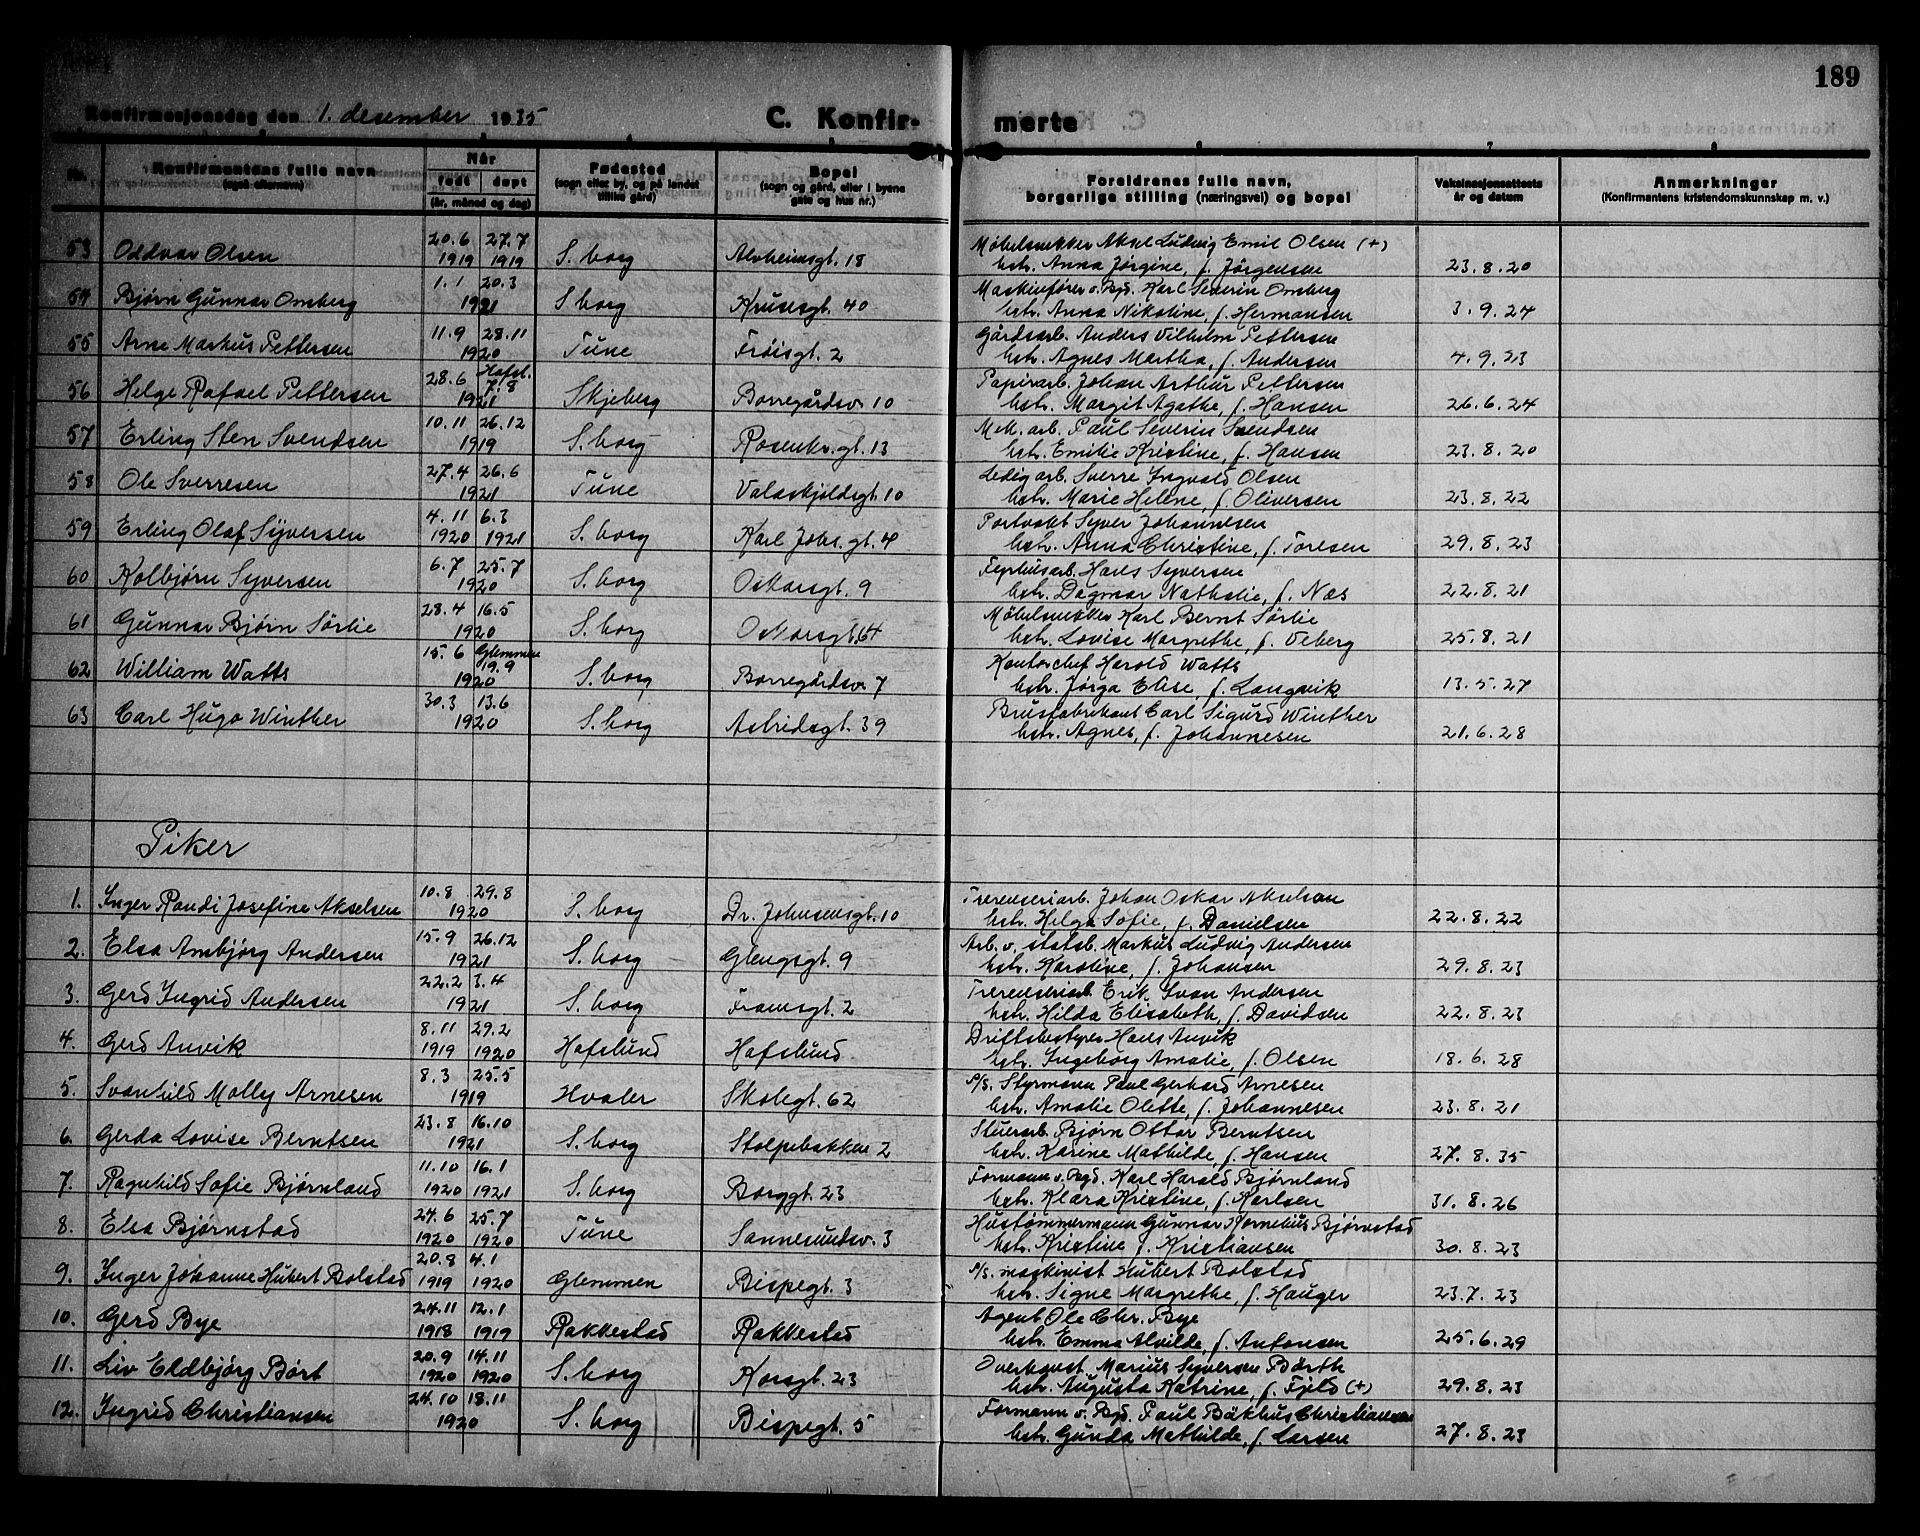 189
Konfirmasjonsdag den 1. desember 1935 C. Konfir- merte
Nr. Konfirmantens fulle navn (også etternavn) Når født døpt (år, måned og dag) Fødested (sogn eller by, og på landet tillike gård) Bopel (sogn og gård, eller i byene gate og hus nr.) Foreldrenes fulle navn, borgerlige stilling (næringsvei) og bopel Vaksinasjonsattests år og datum Anmerkninger (Konfirmantens kristendomskunnskap m. v.)
53 Oddvar Olsen 20.6 1919 27.7 1919 S.borg Alvheimsgt. 18 Møbelsnekker Aksel Ludvig Emil Olsen (+)
hstr. Anna Jørgine, f. Jørgensen 23.8.20
54 Bjørn Gunnar Omberg 1.1 20.3 1921 S.borg Krusesgt. 40 Maskinfører v. Bgd. Karl Severin Omberg
hstr. Anna Nikoline, f. Hermansen 3.9.24
55 Arne Markus Pettersen 11.9 28.11 1920 Tune Frøisgt. 2 Gårdsarb. Anders Vilhelm Pettersen
hstr. Agnes Martha, f. Andersen 4.9.23
56 Helge Rafael Pettersen 28.6 Hafsl. 7.8 1921 Skjeberg Borregårdsv. 10 Papirarb. Johan Arthur Pettersen
hstr. Margit Agathe, f. Hansen 26.6.24
57 Erling Sten Svendsen 10.11 26.12 1919 S.borg Rosenkr.gt. 13 Mek. arb. Paul Severin Svendsen
hstr. Emilie Kristine, f. Hansen 23.8.20
58 Ole Sverresen 27.4 26.6 1921 Tune Valaskjoldsgt. 10 Ledig arb. Sverre Ingvald Olsen
hstr. Marie Helene, f. Oliversen 23.8.22
59 Erling Olaf Syversen 4.11 1920 6.3 1921 S.borg Karl Johs. gt. 4 Portvakt Syver Johannesen
hstr. Anna Christine, f. Toresen 29.8.23
60 Kolbjørn Syversen 6.7 25.7 1920 S.borg Oskarsgt. 9 Fyrhusarb. Hans Syversen
hstr. Dagmar Nathalie, f. Næs 22.8.21
61 Gunnar Bjørn Sørlie 28.4 16.5 1920 S.borg Oskarsgt. 64 Møbelsnekker Karl Bernt Sørlie
hstr. Lovise Margrethe, f. Veberg 25.8.21
62 William Watts 15.6 Glemmen 19.9 1920 S.borg Borregårdsv. 7 Kontorchef Harold Watts
hstr. Jørga Elise, f. Langvik 13.5.27
63 Carl Hugo Winther 30.3 13.6 1920 S.borg Astridsgt. 39 Brusfabrikant Carl Sigurd Winther
hstr. Agnes, f. Johannesen 21.6.28
Piker
1. Inger Randi Josefine Akselsen 10.8 29.8 1920 S.borg Dr. Johnsensgt. 10 Trerenseriarb. Johan Oskar Akselsen
hstr. Helga Sofie, f. Danielsen 22.8.22
2. Elsa Ambjørg Andersen 15.9 26.12 1921 S.borg Glengsgt. 9 Arb. v. statsb. Markus Ludvig Andersen
hstr. Karoline, f. Johansen 29.8.23
3. Gerd Ingrid Andersen 22.2 3.4 1921 S.borg Framsgt. 2 Trerenseriarb. Erik Ivan Andersen
hstr. Hilda Elisabeth, f. Davidsen 22.8.23
4. Gerd Anvik 8.11 1919 29.2 1920 Hafslund Hafslund Driftsbestyrer Hans Anvik
hstr. Ingeborg Amalie, f. Olsen 18.6.28
5. Svanhild Molly Arnesen 8.3 25.5 1919 Hvaler Skolegt. 62 P/s. Styrmann Paul Gerhard Arnesen
hstr. Amalie Olette, f. Johannesen 23.8.21
6. Gerda Lovise Berntsen 23.8 16.10 1921 S.borg Stolpebakken 2 Stuerarb. Bjørn Ottar Berntsen
hstr. Karine Mathilde, f. Hansen 27.8.35
7. Ragnhild Sofie Bjørnland 11.10 1920 16.1 1921 S.borg Borggt. 23 Formann v. Bgd. Karl Harald Bjørnland
hstr. Klara Kristine, f. Karlsen 31.8.26
8. Elsa Bjørnstad 24.6 1920 25.7 1920 Tune Sannesundsv. 3 Hustømmermann Gunnar Kornelius Bjørnstad
hstr. Kristine f. Kristiansen 30.8.23
9. Inger Johanne Hubert Bolstad 20.8 1919 4.1 1920 Glemmen Bispegt. 3 P/s. maskinist Hubert Bolstad
hstr. Signe Margrethe, f. Hauger 23.7.23
10. Gerd Bye 24.11 1918 12.1 1919 Rakkestad Rakkestad Agent Ole Chr. Bye
hstr. Emma Alvilde, f. Antonsen 25.6.29
11. Liv Eldbjørg Børt 20.9 1920 14.11 1920 S.borg Korsgt. 23 Overkonst. Marius Syversen Børth
hstr. Augusta Katrine, f. Fjeld (+) 29.8.23
12. Ingrid Christiansen 24.10 18.11 1920 S.borg Bispegt. 5 Formann v. Bgd. Paul Bäkhus Christiansen
hstr. Gunda Mathilde, f. Larsen 27.8.23